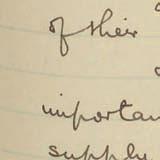 of their
importan
supply